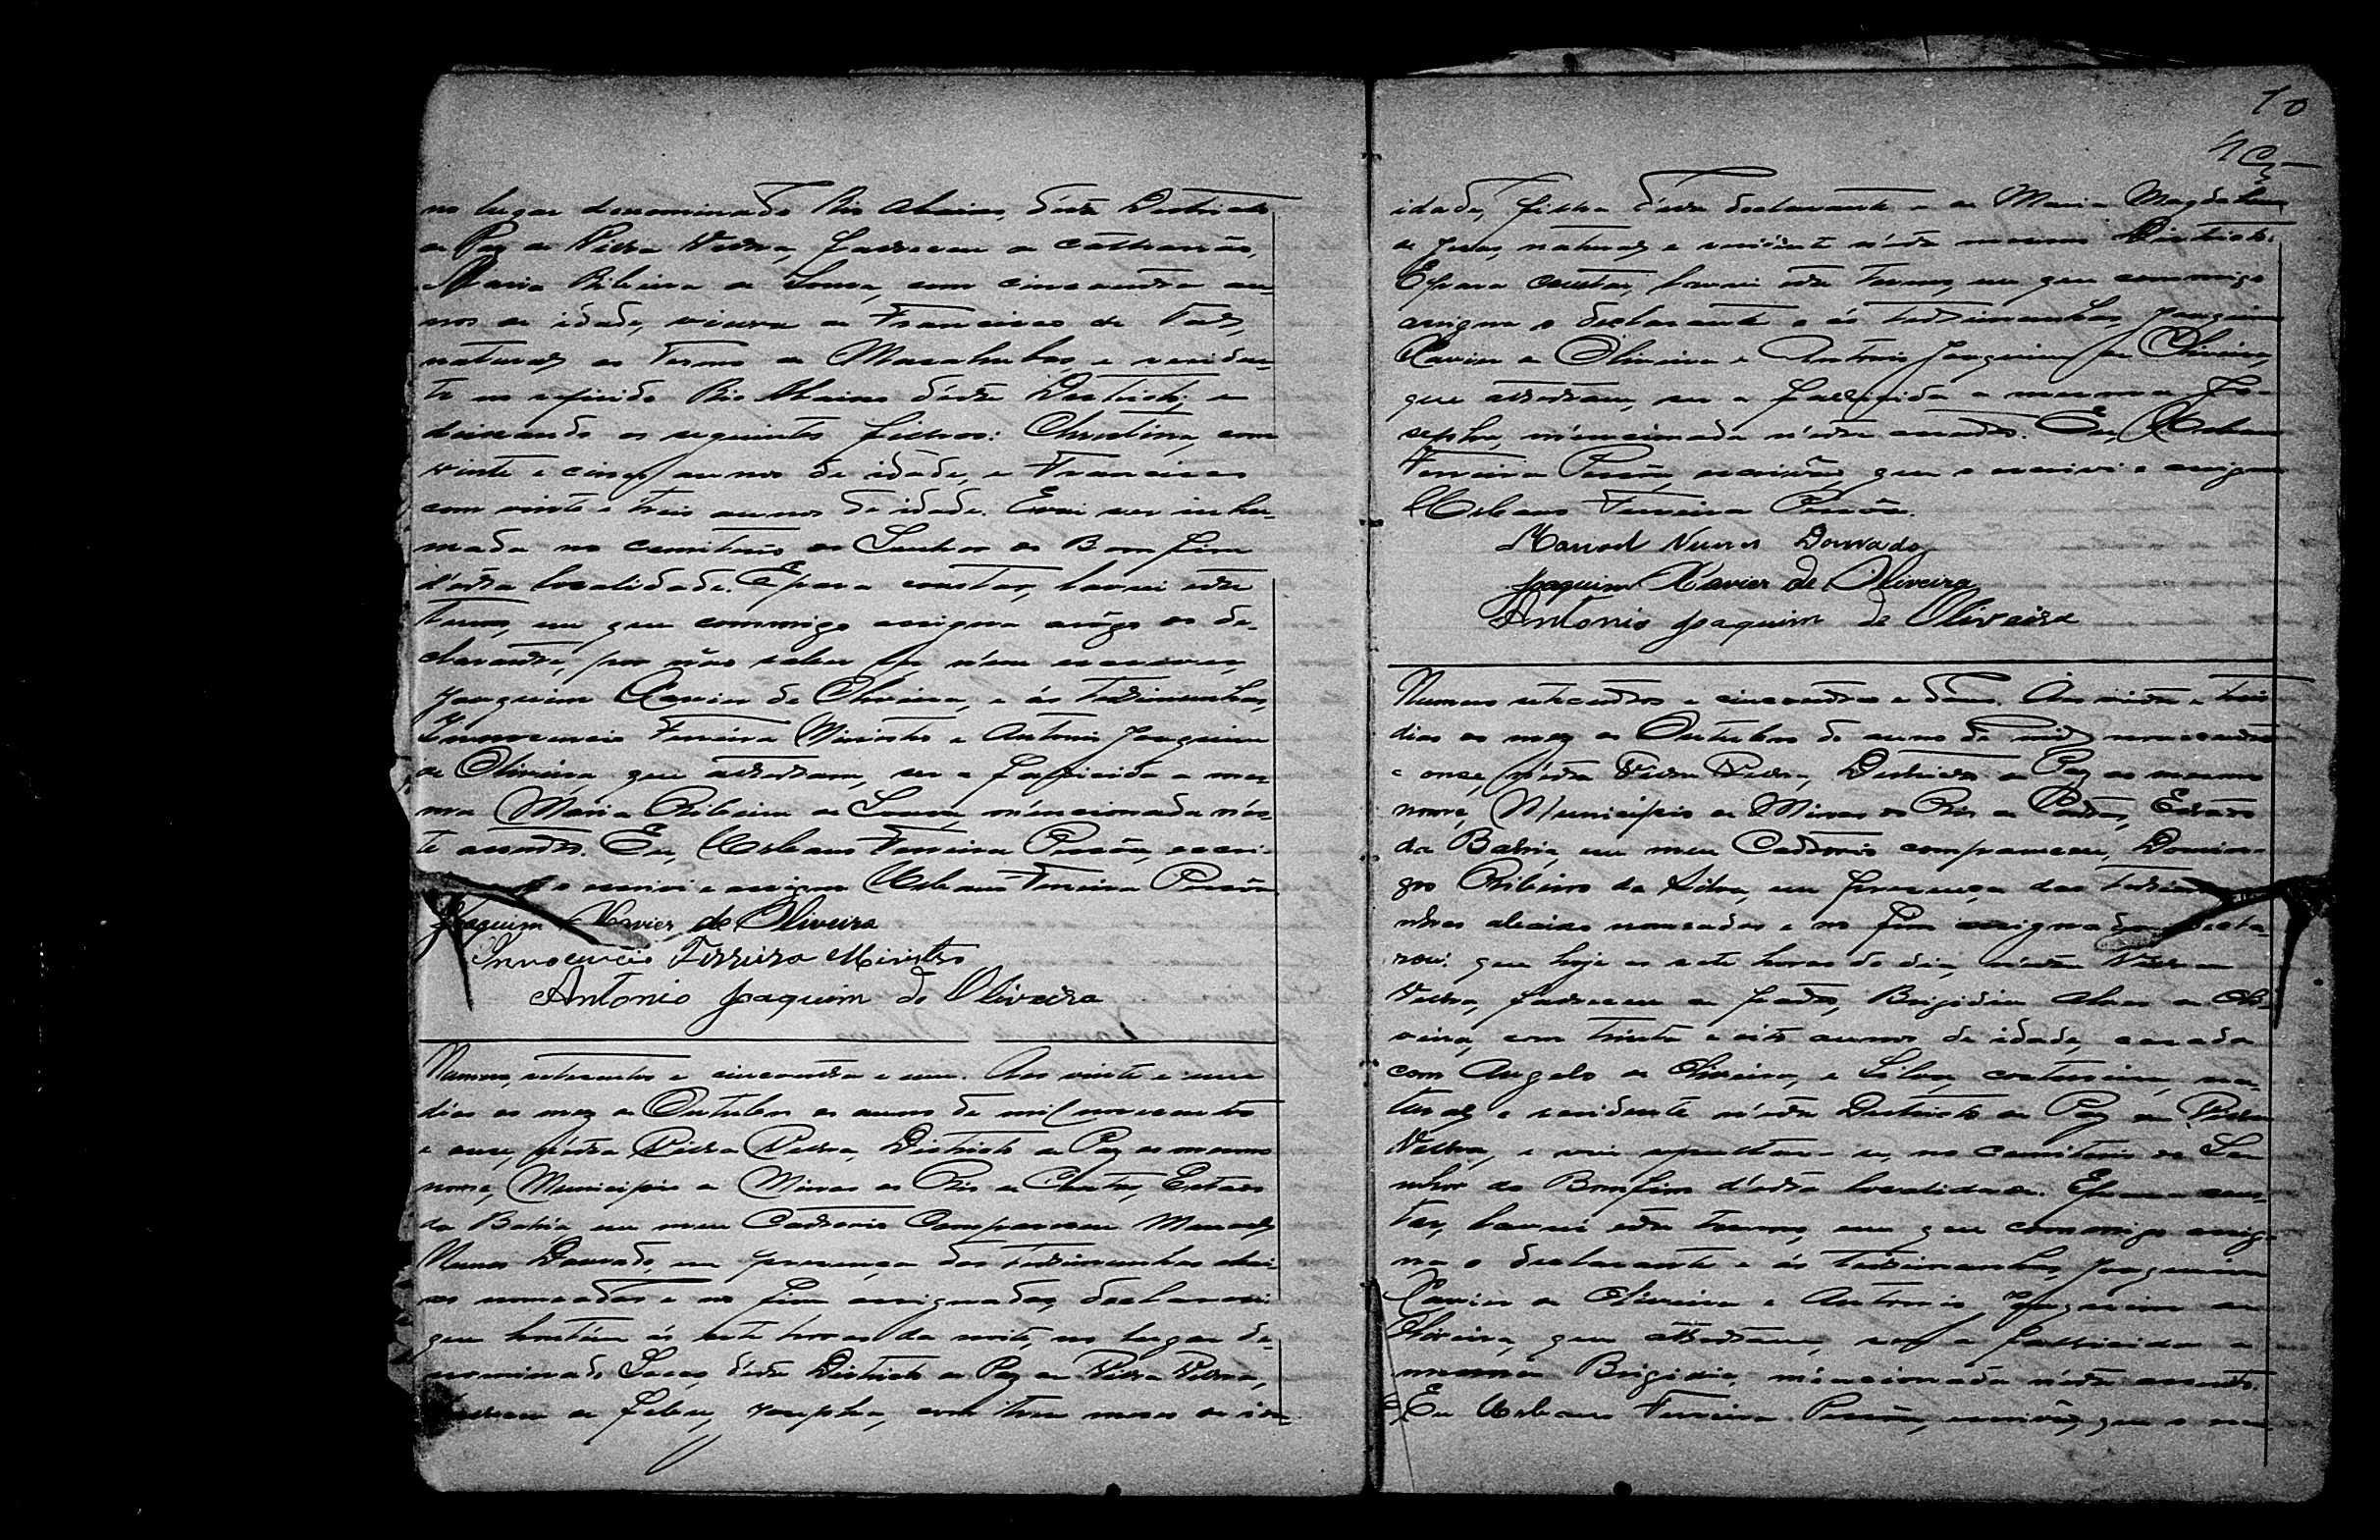 no lugar denominado Rio Abaixo, d'este Districto
de Paz de Villa Velha, falleceu de catharrão,
Maria Ribeiro de Sousa, com cincoenta an-
nos de idade, viuva de Francisco de
natural do Termo de Macahubas, e residen-
te no referido Rio Abaixo d'este Districto, e
deixando os seguintes filhos: Christina, com
vinte e cinco annos de idade, e Francisco
com vinte e trez annos de idade. E vai ser inhu-
mada no cemiterio do Senhor do Bom fim
d'esta localidade. E para constar, lavrei este
termo, em que commigo assigna arôgo do de-
clarante, por não saber ler n'em escrever,
Joaquim Xavier de Oliveira, e ás testimunhas,
Innocencio Ferreira Ministro e Antonio Joaquim
de Oliveira, que attestam, ser a fallecida a mes-
ma Maria Ribeiro de Sousa, méncionada nés-
te assento. Eu, Ferreira escri-
o escrevi e assigno Ferreira
Joaquim Xavier de Oliveira
Innocencio Ferreira Ministro
Antonio Joaquim de Oliveira
Numero, setecentos e cincoenta e um. Aos vinte e um
dias do mez de Outubro do anno de mil novecentos
e onse, n'ésta Villa Velha, Districto de Paz do mesmo
nome, Municipio de Minas do Rio de Contas, Estado
da Bahia, em meu Cartorio Compareceu Manoel
Nunes Dourado, em presença das testimunhas abai-
xo nomeadas e no fim assignadas, declarou:
que hontém ás sete horas da noite, no lugar de-
nominado d'este Districto de Paz de Villa Velha,
falleceu de febre, Josepha, com trez meses de ida-
10
idade, filha d'elle declarante e de Maria Magdalena
de Jesus, natural e residente n'éste mesmo Districto.
E para constar, lavrei este termo, em que commigo
assigna o declarante e ás testimunhas, Joaquim
Xavier de Oliveira e Antonio Joaquim de Oliveira,
que attestam, ser a fallecida a mesma Jo-
sepha, méncionada n'éste assento. Eu,
Ferreira escrivão, que o escrevi e assigno
Ferreira
Manoel Nunes Dourado
Joaquim Xavier de Oliveira
Antonio Joaquim de Oliveira
Numero setecentos e cincoenta e dous. Aos vinte e trez
dias do mez de Outubro do anno de mil novecentos
e onse, n'ésta Villa Velha, Districto de Paz do mesmo
nome, Municipio de Minas do Rio de Contas, Estado
da Bahia, em meu Cartorio compareceu, Domin-
gos Ribeiro da Silva, em presença das testimu-
nhas abaixo nomeadas e no fim assignadas, decla-
rou: que hoje as sete horas do dia, n'ésta Villa
Velha, falleceu de parto, Brigida Alves de Oli-
veira, com trinta e oito annos de idade, casada
com Angelo de Oliveira, e Silva, costureira, na-
tural e residente n'éste Districto de Paz de Villa
Velha, e vai sepultar-se, no Cemiterio do Se-
nhor do Bomfim d'ésta localidade. E para cons-
tar, lavrei este termo, em que commigo assig-
na o declarante e ás testimunhas, Joaquim
Xavier de Oliveira e Antonio Joaquim de
Oliveira, que attestam, ser a fallecida a
mesma Brigida, méncionada n'éste assento.
Eu Ferreira escrivão, que o es